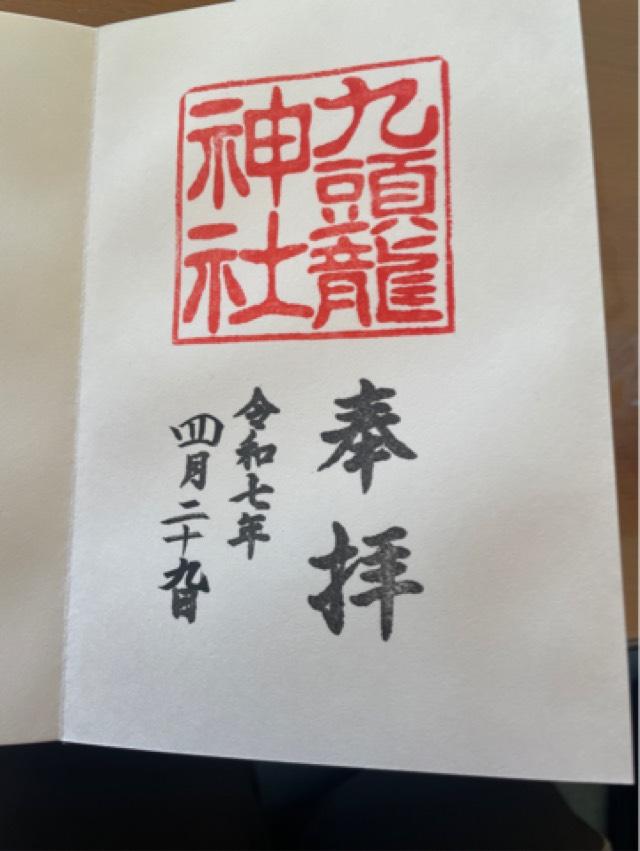 九頭龍
神社
奉拝
令和七年
四月二十九日